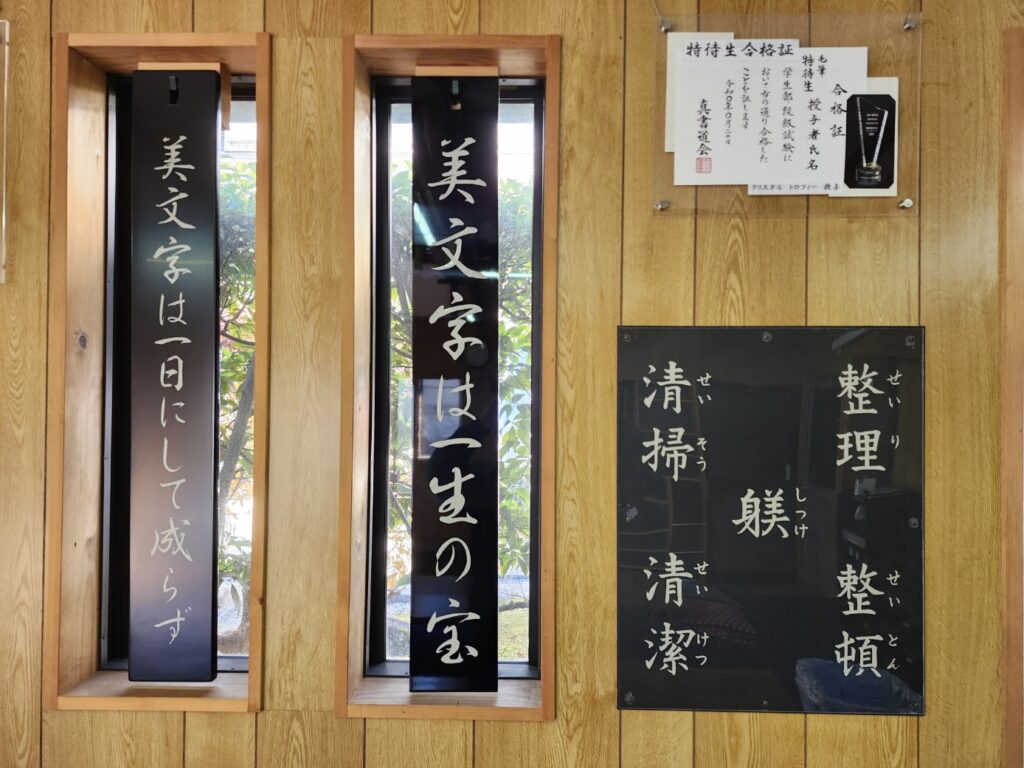 美文字は一生の宝
美文字は一日にして成らず
毛筆
特待生
合格証
授与者氏名
特待生合格証
学生部段級試験に
おいて右の通り合格した
ことを証します
真書道会
クリスタル トロフィー 授与
整理
せいり
整頓
せいとん
躾
しつけ
清掃
せいそう
清潔
せいけつ